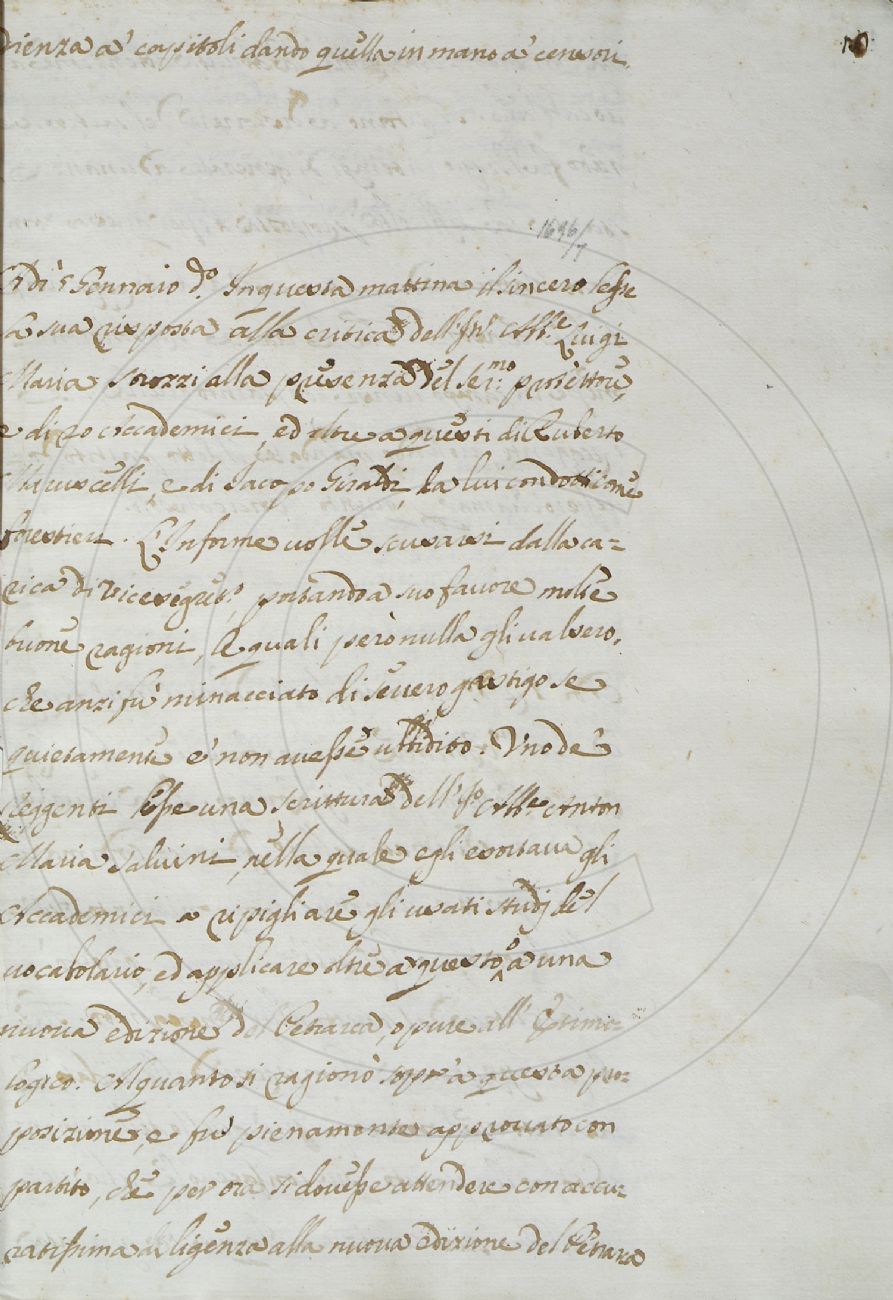 dienza a' capitoli dando quella in mano a' censori.
10
1696/7
dì 5 Gennaio d.º In questa mattina il sincero lesse
la sua risposta alla critica dell' Sr. Abb.e Luigi
Maria Strozzi alla presenza del Ser.mo protettore,
e di 20 Accademici, ed oltre a questi di Ruberto
e di Jacopo Giraldi, da lui condotti come
forestieri. L'Informe volle scusarsi dalla ca=
rica di Vicesegret.º, portando a suo favore molte
buone ragioni, le quali però nulla gli valsero,
che anzi fù minacciato di severo gastigo se
quietamente e' non avesse ubbidito. Uno de'
leggenti lesse una scrittura dell' Abb.e Anton
Maria Salvini, nella quale egli esortava gli
Accademici a ripigliare gli usati studj del
vocabolario, ed applicare oltre a questo, o a una
nuova edizione del Petrarca, o pure all' Etimo=
logico. Alquanto si ragionò sopr'a questa pro=
posizione, e fù pienamente approvato con
partito, che per ora si dovesse attendere con accu=
ratissima diligenza alla nuova edizione del Petrarca